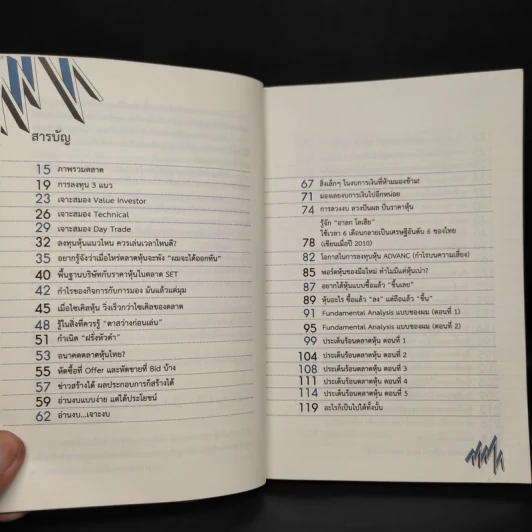 สารบัญ
15 ภาพรวมตลาด
19 การลงทุน 3 แนว
23 เจาะสมอง Value Investor
26 เจาะสมอง Technical
29 เจาะสมอง Day Trade
32 ลงทุนหุ้นแนวไหน ควรเล่นเวลาไหนดี?
35 อยากรู้จังว่าเมื่อไหร่ตลาดหุ้นจะพัง "ผมจะได้ออกทัน"
40 พื้นฐานบริษัทกับราคาหุ้นในตลาด SET
42 กำไรของกิจการกับการมอง มันแล้วแต่มุม
45 เมื่อไซเคิลหุ้น วิ่งเร็วกว่าไซเคิลของตลาด
48 รู้ในสิ่งที่ควรรู้ "ตาสว่างก่อนเล่น"
51 กำเนิด "ฝรั่งหัวดำ"
53 อนาคตตลาดหุ้นไทย?
55 หัดซื้อที่ Offer และหัดขายที่ Bid บ้าง
57 ข่าวสร้างได้ ผลประกอบการก็สร้างได้
59 อ่านงบแบบง่าย แต่ได้ประโยชน์
62 อ่านงบ...เจาะงบ
67 สิ่งเล็กๆ ในงบการเงินที่ห้ามมองข้าม!
71 มองเลยงบการเงินไปอีกหน่อย
74 การลวงงบ ลวงปันผล ปั่นราคาหุ้น
รู้จัก "อาลก โลเฮีย"
ใช้เวลา 6 เดือนกลายเป็นเศรษฐีอันดับ 6 ของไทย
78 (เขียนเมื่อปี 2010)
82 โอกาสในการลงทุนหุ้น ADVANC (กำไรบนความเสี่ยง)
85 พอร์ตหุ้นของมือใหม่ ทำไมมีแต่หุ้นเน่า?
87 อยากได้หุ้นแบบซื้อแล้ว "ขึ้นเลย"
89 หุ้นอะไร ซื้อแล้ว "ลง" แต่ถือแล้ว "ขึ้น"
91 Fundamental Analysis แบบของผม (ตอนที่ 1)
95 Fundamental Analysis แบบของผม (ตอนที่ 2)
99 ประเด็นร้อนตลาดหุ้น ตอนที่ 1
104 ประเด็นร้อนตลาดหุ้น ตอนที่ 2
108 ประเด็นร้อนตลาดหุ้น ตอนที่ 3
111 ประเด็นร้อนตลาดหุ้น ตอนที่ 4
114 ประเด็นร้อนตลาดหุ้น ตอนที่ 5
119 อะไรก็เป็นไปได้ทั้งนั้น